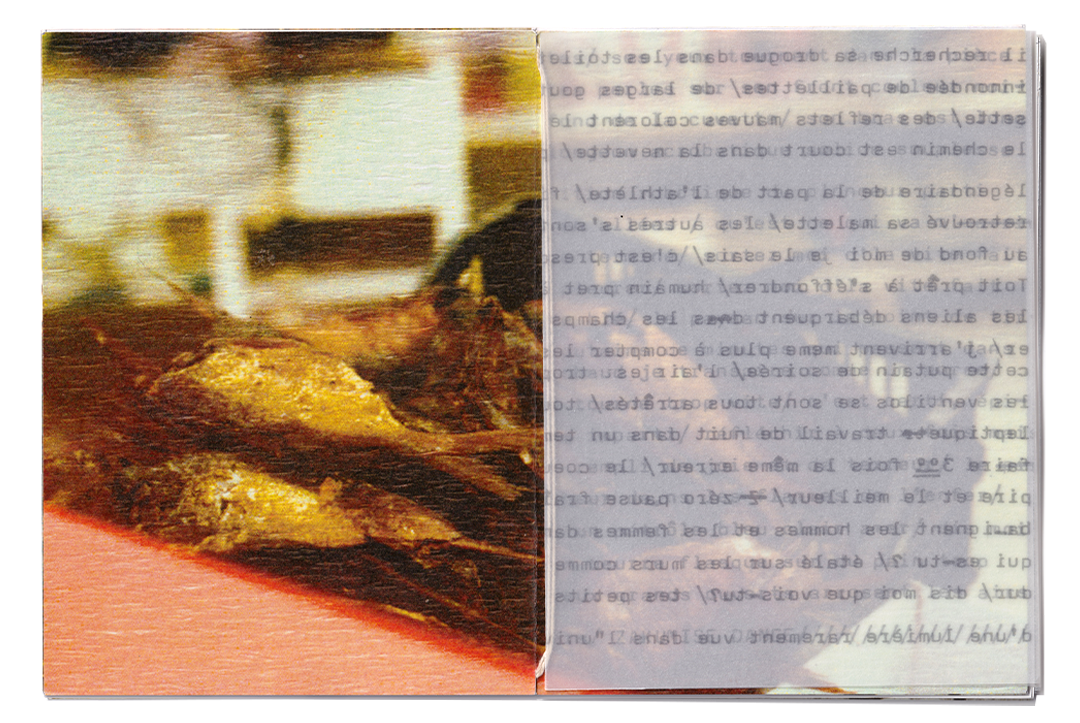 il recherche sa drogue dans les
inondée de paillettes/ de larges
sette/ des reflets mauves colorent le
le chemin est court dans la nevette/
légendaire de la part de l'athlète/
retrouvé sa malette/ les
au fond de moi je le sais/ c'est
Toit prêt à s'éffondrer/ humain pret
les aliens débarquent dans les champs
er/ j'arrivent meme plus à compter
cette putain de soirée/ l'air
les ventilos se sont tous arrêtés/
travail de nuit dans un
faire 3°° fois la même erreur/
pire et le meilleur/ 2 zéro pause
baignent les hommes et les femmes
qui es-tu ?/ étalé sur les murs comme
dur/ dis moi que vois-tu?/ tes petits
d'une lumière rarement vue dans